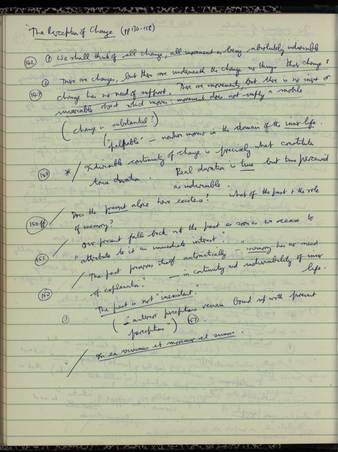 "The Perception of Change (pp 130-158)
(142) ① We shall think of all change, all movement as being absolutely indivisible
② There are changes, but there are underneath the change no things that change:
(147) change has no need of support. There are movements, but there is no inert or
invariable object which moves: movement does not imply a mobile
(change is substantial?)
("palpable" — nowhere more so in the domain of the inner life.
(149) * / Indivisible continuity of change is precisely what constitutes
true duration. Real duration is time but time perceived
as indivisible.
Does the present alone have existence? What of the past & the role
of memory?
Our present falls back into the past as soon as we cease to
"attribute to it an immediate interest".
The past preserves itself automatically "memory has no need
of explanation." — in continuity and indivisibility of inner
life.
The past is not "inexistent".
(" anterior perceptions remain bound up with present
perceptions.") 157
/ In ea vivimus et movemur et sumus.